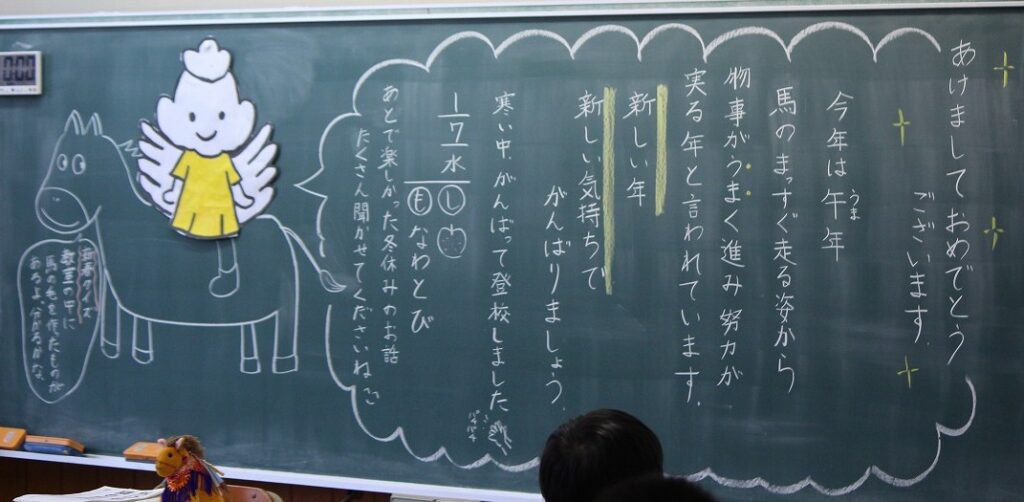 あけましておめでとう
ございます.
今年は午年
うま
馬のまっすぐ走る姿から
物事がうまく進み努力が
実る年と言われています.
新しい年
新しい気持ちで
がんばりましょう.
寒い中、がんばって登校しました
パチパチ
1/7水
し
も なわとび
あとで楽しかった冬休みのお話
たくさん聞かせてくださいね
新春クイズ
教室の中に
馬の毛を使たものが
あるよ、分かるかな
0:00